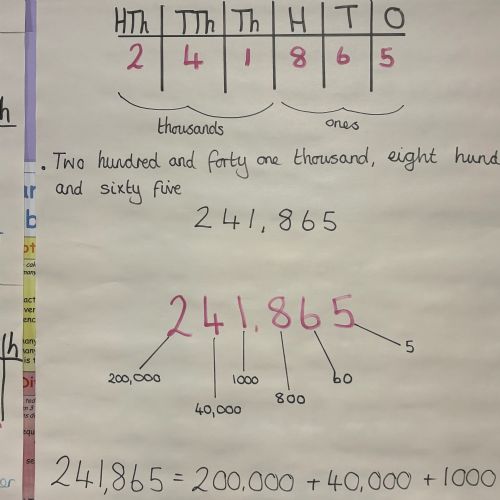 HTh TTh Th H T O
2 4 1 8 6 5
thousands ones
. Two hundred and forty one thousand, eight
and sixty five
241,865
241,865
5
200,000 1000 60
40,000 800
241,865 = 200,000 + 40,000 + 1000